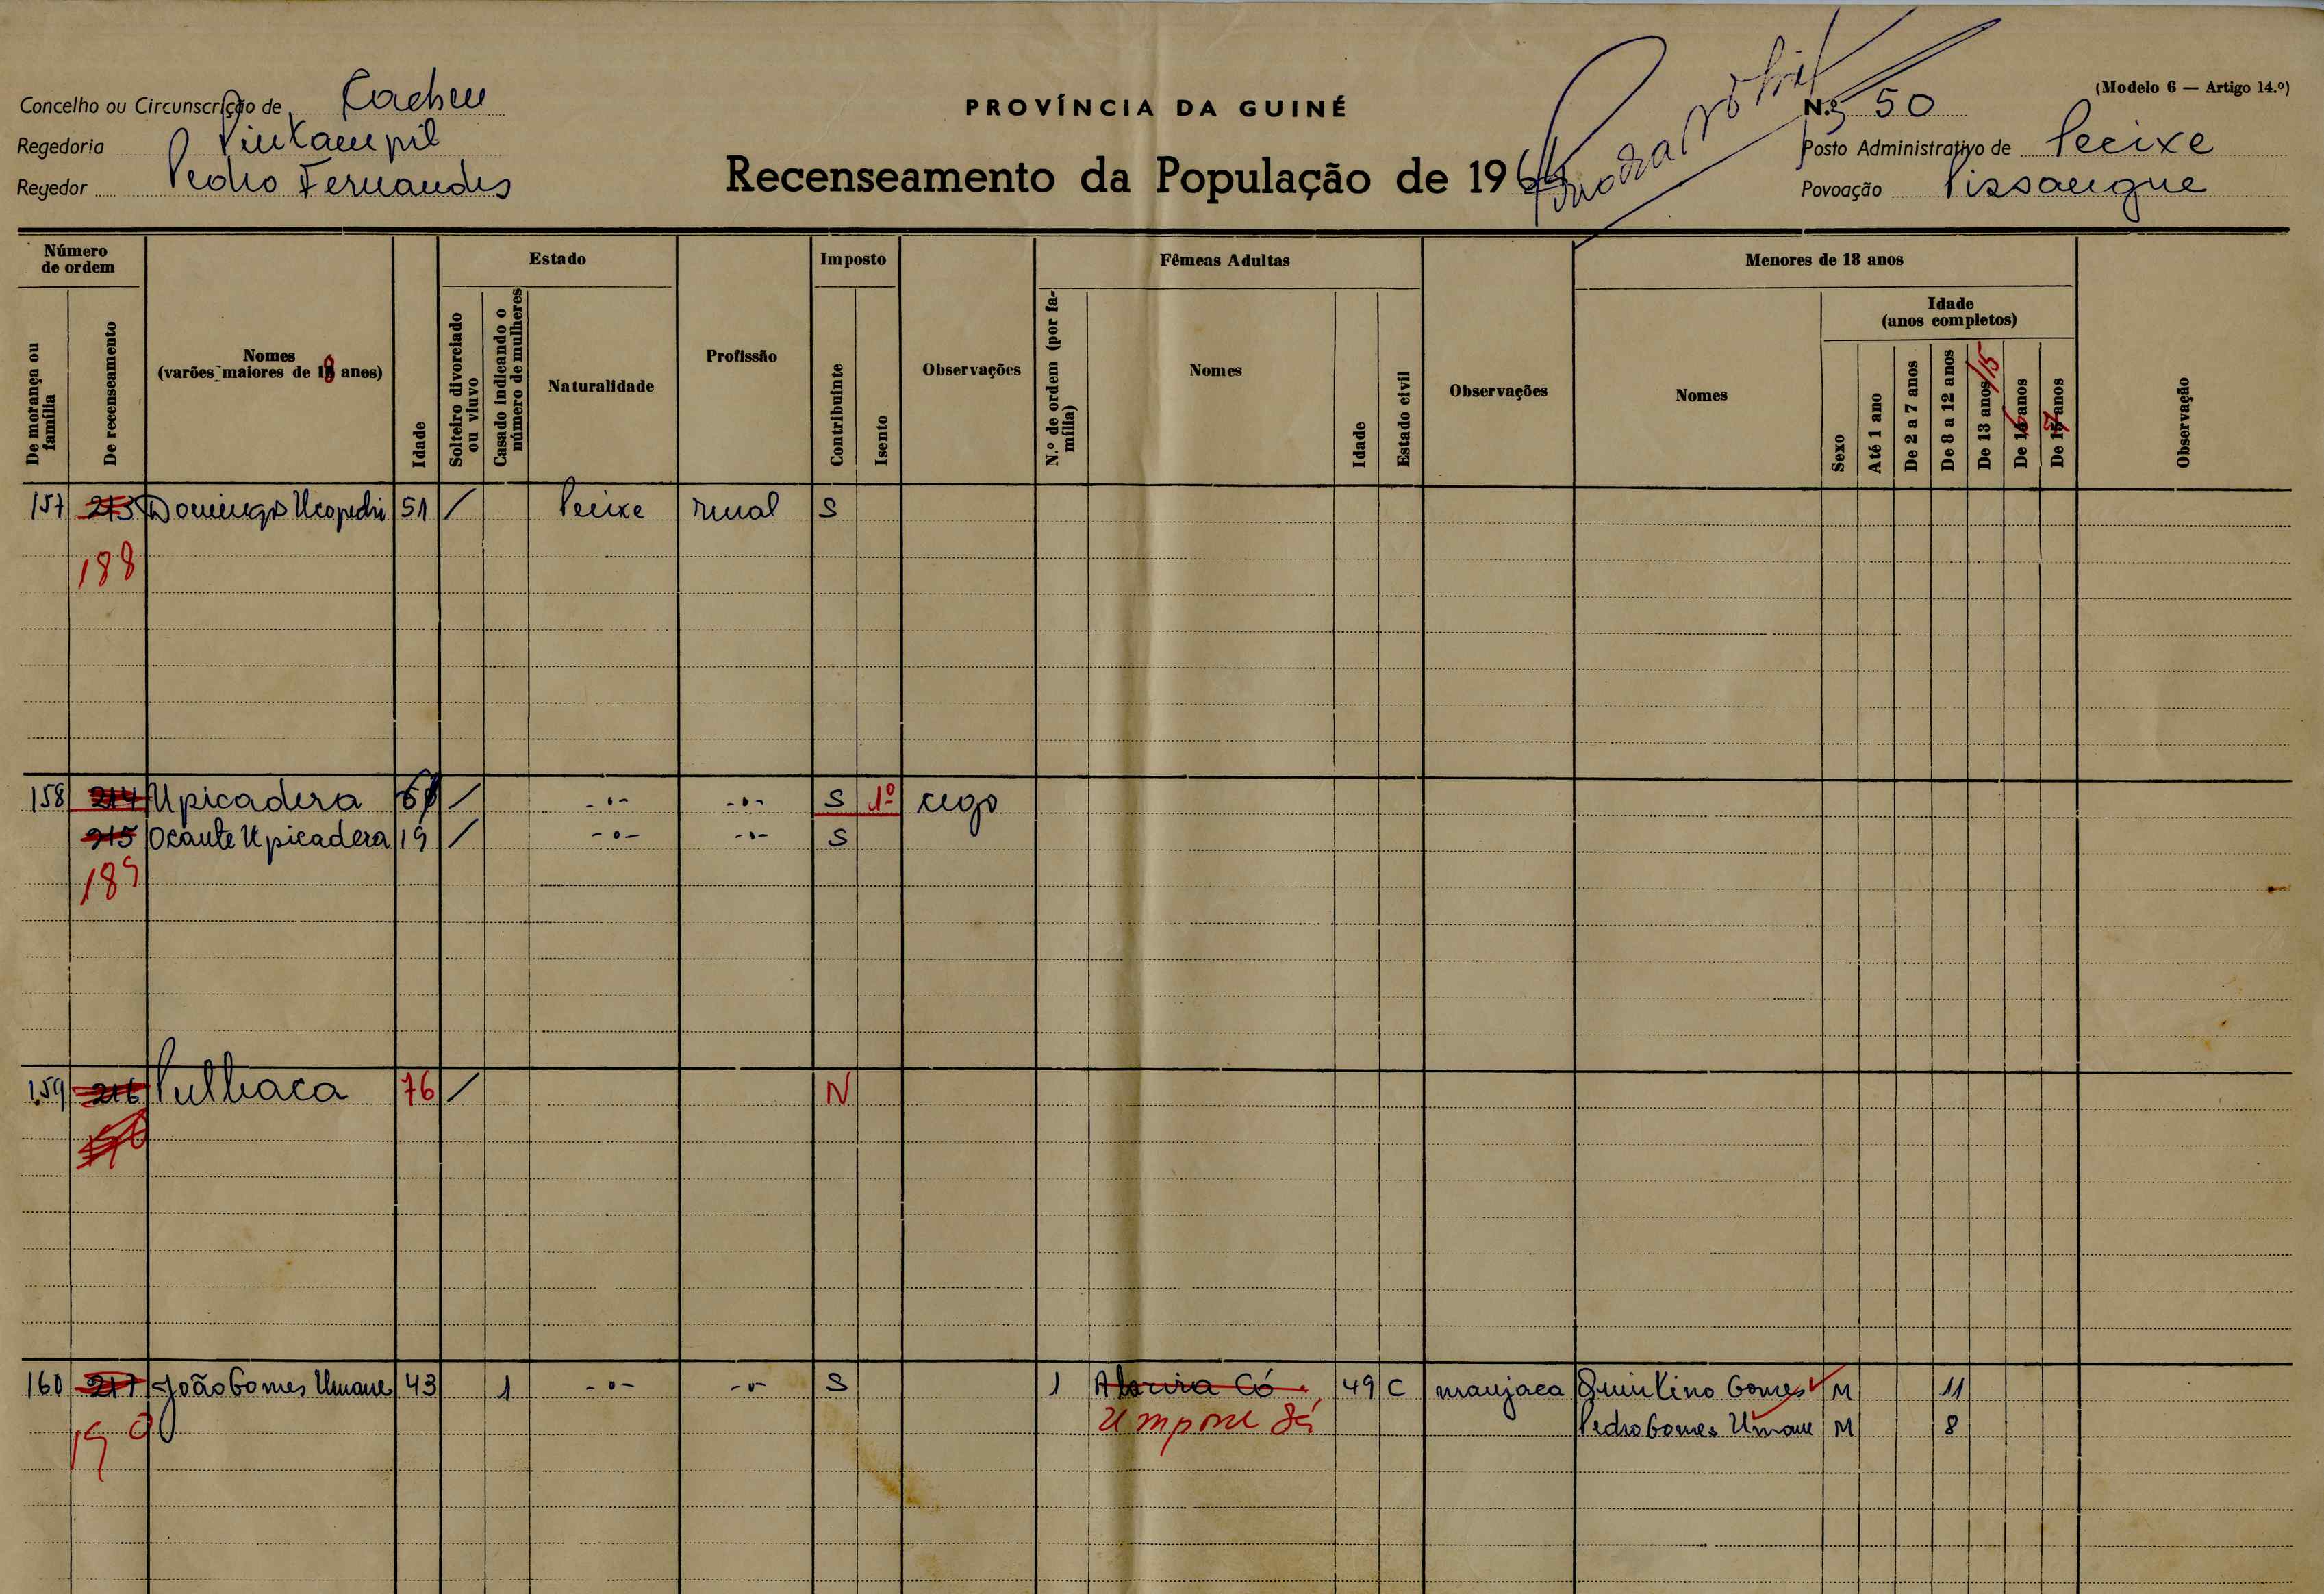 (Modelo 6 — Artigo 14.º)
Concelho ou Circunscrição de Cacheu
PROVÍNCIA DA GUINÉ
N.º 50
Regedoria
Posto Administrativo de Pecixe
Regedor Pedro Fernandes
Recenseamento da População de 1964
Povoação Pissangue
Número de ordem
De morança ou família
De recenseamento
Nomes
(varões maiores de 18 anos)
Idade
Estado
Solteiro divorciado ou viuvo
Casado indicando o número de mulheres
Naturalidade
Profissão
Imposto
Contribuinte
Isento
Observações
Fêmeas Adultas
N.º de ordem (por família)
Nomes
Idade
Estado civil
Observações
Menores de 18 anos
Nomes
Sexo
Idade
(anos completos)
Até 1 ano
De 2 a 7 anos
De 8 a 12 anos
De 13 anos /15
De 16 anos
De 17 anos
Observação
157 213 Domingos Ucopedri 51 / Pecixe rural S
188
158 214 Upicadera / -"- -"- S 1º cego
215 Ocante Upicadera 19 / -"- -"- S
189
159 216 Pulhaca 76 / N
160 217 João Gomes Umane 43 1 -"- -"- S 1 Có 49 C manjaca Quintino Gomes M 11
190 Umpone Sá Pedro Gomes Umane M 8